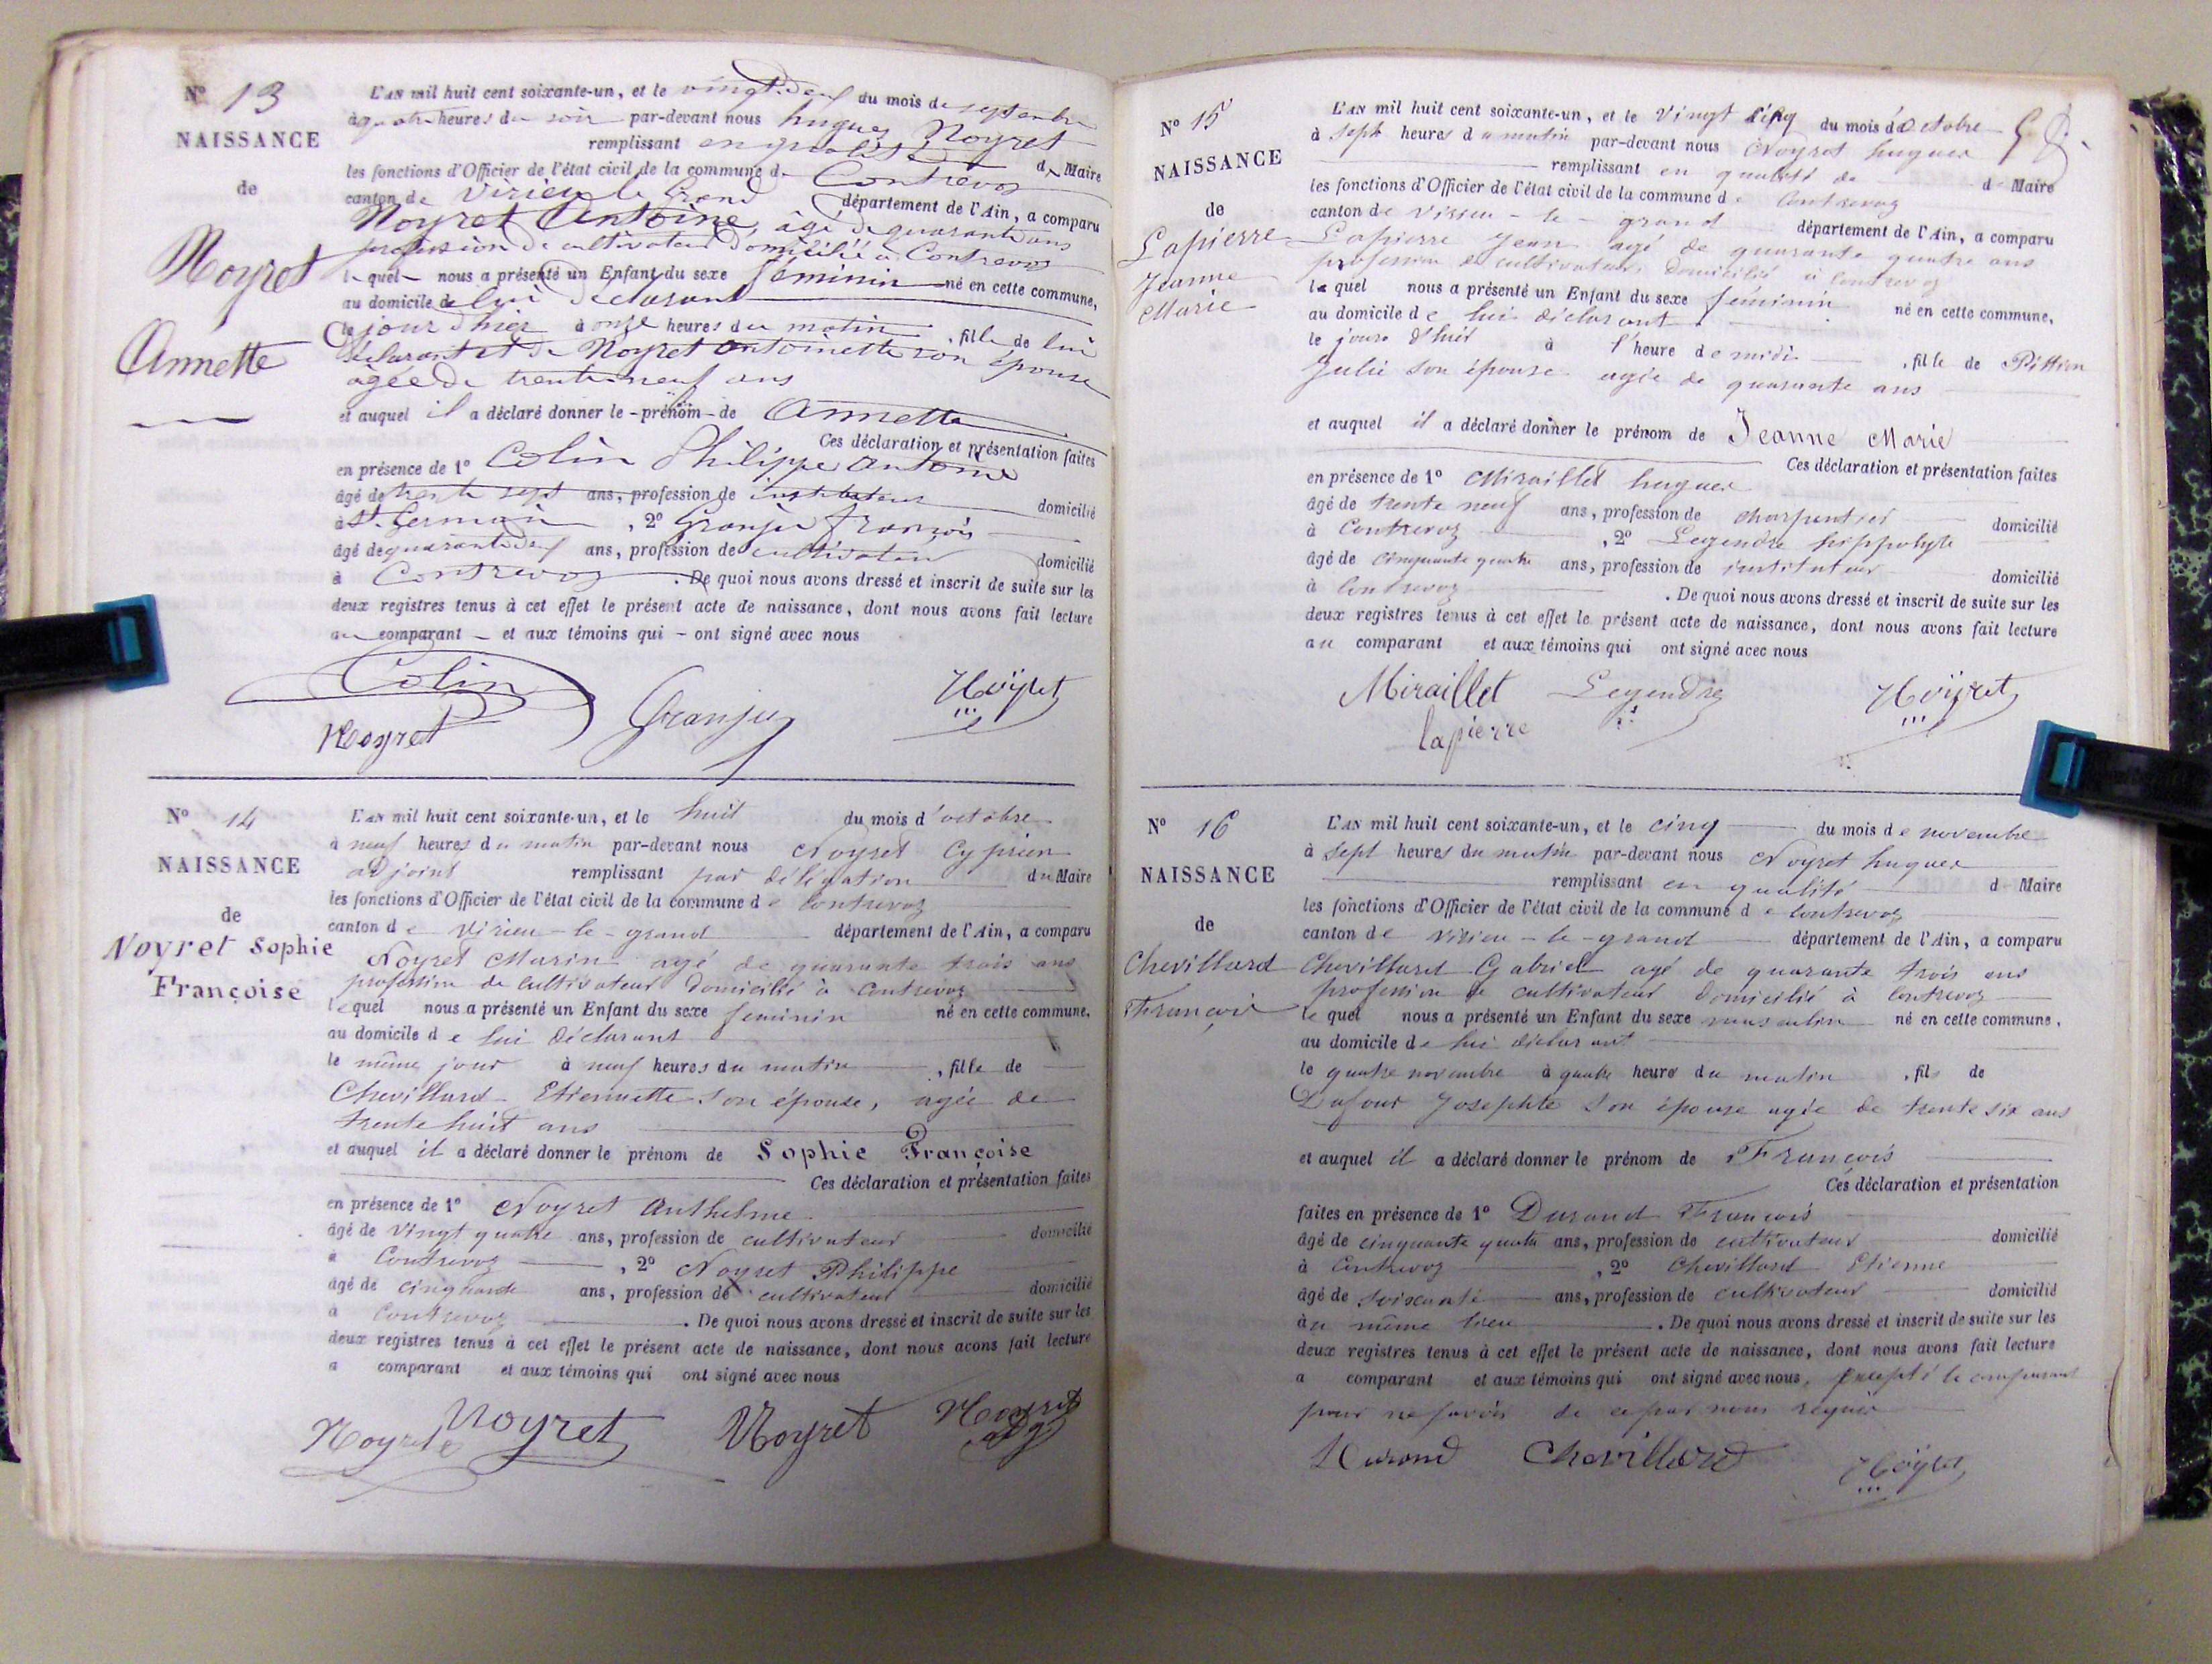 Nº 13
NAISSANCE
de
Noyret
Annette
L'AN mil huit cent soixante-un, et le vingt-deux du mois de septembre
à quatre heures du soir par-devant nous hugues Noyret
remplissant en qualité de Maire
les fonctions d'Officier de l'état civil de la commune de Contrevoz
canton de Virieu le Grand département de l'Ain, a comparu
Noyret Antoine, âgé de quarante ans
profession de cultivateur domicilié à Contrevoz
lequel nous a présenté un Enfant du sexe féminin né en cette commune,
au domicile de lui déclarant
le jour d'hier à onze heures du matin, fille de lui
déclarant et de Noyret Antoinette son épouse
âgée de trente neuf ans
et auquel il a déclaré donner le prénom de Annette
Ces déclaration et présentation faites
en présence de 1º Colin Philippe Antoine
âgé de trente sept ans, profession de instituteur domicilié
à St. Germain, 2º Granju françois
âgé de quarante deux ans, profession de cultivateur domicilié
à Contrevoz. De quoi nous avons dressé et inscrit de suite sur les
deux registres tenus à cet effet le présent acte de naissance, dont nous avons fait lecture
au comparant et aux témoins qui ont signé avec nous
Colin
Noyret Granju Noyret
Nº 14
NAISSANCE
de
Noyret Sophie
Françoise
L'AN mil huit cent soixante-un, et le huit du mois d'octobre
à neuf heures du matin par-devant nous Noyret Cyprien
adjoint remplissant par délégation du Maire
les fonctions d'Officier de l'état civil de la commune de Contrevoz
canton de Virieu-le-grand département de l'Ain, a comparu
Noyret Marin agé de quarante trois ans
profession de cultivateur domicilié à Contrevoz
lequel nous a présenté un Enfant du sexe feminin né en cette commune,
au domicile de lui déclarant
le même jour à neuf heures du matin, fille de
Chevillard Etiennette son épouse, agée de
trente huit ans
et auquel il a déclaré donner le prénom de Sophie Françoise
Ces déclaration et présentation faites
en présence de 1º Noyret Anthelme
âgé de vingt quatre ans, profession de cultivateur domicilié
à Contrevoz, 2º Noyret Philippe
âgé de cinquante ans, profession de cultivateur domicilié
à Contrevoz. De quoi nous avons dressé et inscrit de suite sur les
deux registres tenus à cet effet le présent acte de naissance, dont nous avons fait lecture
a comparant et aux témoins qui ont signé avec nous
Noyret Noyret Noyret Noyret
adj
Nº 15
NAISSANCE
de
Lapierre
Jeanne
Marie
L'AN mil huit cent soixante-un, et le vingt cinq du mois d'octobre
à sept heures du matin par-devant nous Noyret hugues
remplissant en qualité de d Maire
les fonctions d'Officier de l'état civil de la commune de Contrevoz
canton de Virieu-le-grand département de l'Ain, a comparu
Lapierre Jean agé de quarante quatre ans
profession de cultivateur domicilié à Contrevoz
lequel nous a présenté un Enfant du sexe féminin né en cette commune,
au domicile de lui déclarant
le jour d'hier à l'heure de midi, fille de Pittion
Julie son épouse agée de quarante ans
et auquel il a déclaré donner le prénom de Jeanne Marie
Ces déclaration et présentation faites
en présence de 1º Miraillet hugues
âgé de trente neuf ans, profession de charpentier domicilié
à Contrevoz, 2º Legendre hippolyte
âgé de cinquante quatre ans, profession de instituteur domicilié
à Contrevoz. De quoi nous avons dressé et inscrit de suite sur les
deux registres tenus à cet effet le présent acte de naissance, dont nous avons fait lecture
au comparant et aux témoins qui ont signé avec nous
Miraillet Legendre Noyret
lapierre
Nº 16
NAISSANCE
de
Chevillard
François
L'AN mil huit cent soixante-un, et le cinq du mois de novembre
à sept heures du matin par-devant nous Noyret hugues
remplissant en qualité d Maire
les fonctions d'Officier de l'état civil de la commune de Contrevoz
canton de Virieu-le-grand département de l'Ain, a comparu
Chevillard Gabriel agé de quarante trois ans
profession de cultivateur domicilié à Contrevoz
lequel nous a présenté un Enfant du sexe masculin né en cette commune,
au domicile de lui déclarant
le quatre novembre à quatre heures du matin, fils de
Dufour Josephte son épouse agée de trente six ans
et auquel il a déclaré donner le prénom de François
Ces déclaration et présentation
faites en présence de 1º Durand François
âgé de cinquante quatre ans, profession de cultivateur domicilié
à Contrevoz, 2º Chevillard Etienne
âgé de soixante ans, profession de cultivateur domicilié
au même lieu. De quoi nous avons dressé et inscrit de suite sur les
deux registres tenus à cet effet le présent acte de naissance, dont nous avons fait lecture
a comparant et aux témoins qui ont signé avec nous, excepté le comparant
pour ne savoir de ce par nous requis
Durand Chevillard Noyret